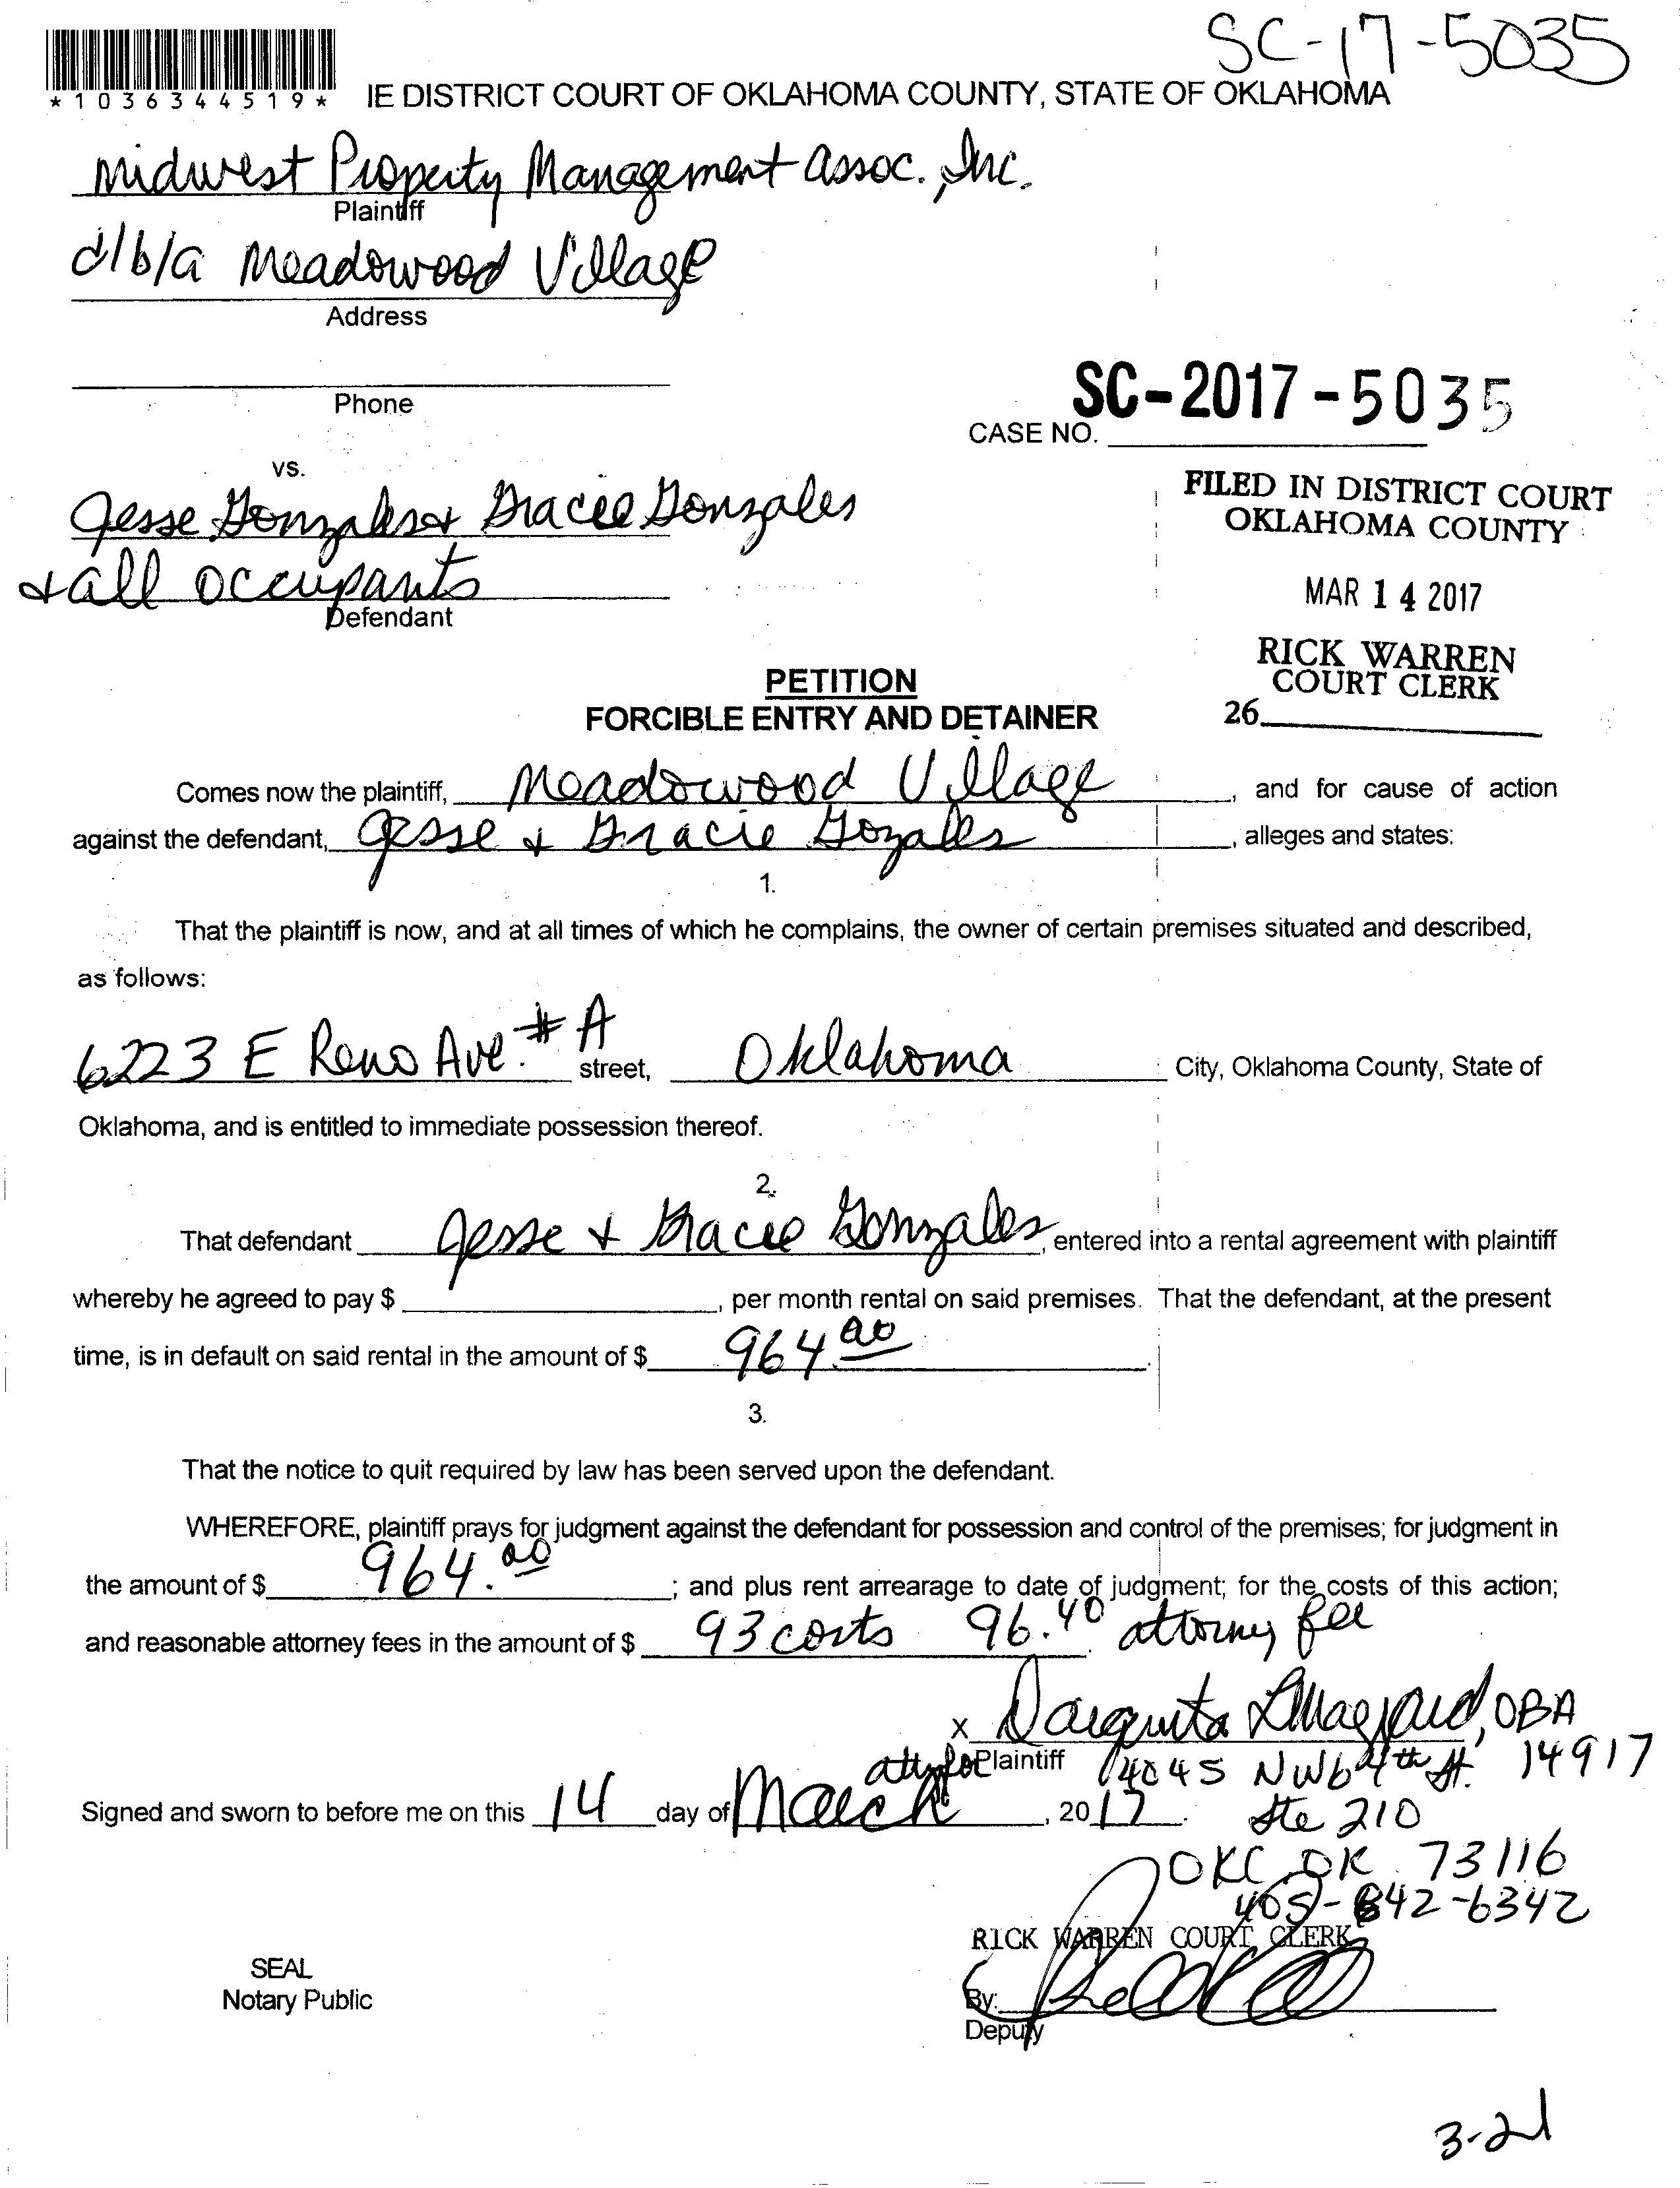 SC-17-5035
*1036344519*
IE DISTRICT COURT OF OKLAHOMA COUNTY, STATE OF OKLAHOMA
Midwest Property Management Assoc., Inc.
Plaintiff
d/b/a Meadowood Village
Address
Phone
SC-2017-5035
CASE NO.
vs.
Jesse Gonzales + Gracee Gonzales
+ all occupants
Defendant
FILED IN DISTRICT COURT
OKLAHOMA COUNTY
MAR 14 2017
RICK WARREN
COURT CLERK
26
PETITION
FORCIBLE ENTRY AND DETAINER
Comes now the plaintiff, Meadowood Village, and for cause of action
against the defendant, Jesse + Gracie Gozales, alleges and states:
1.
That the plaintiff is now, and at all times of which he complains, the owner of certain premises situated and described,
as follows:
6223 E Reno Ave. # A street, Oklahoma City, Oklahoma County, State of
Oklahoma, and is entitled to immediate possession thereof.
2.
That defendant Jesse + Gracee Gonzales, entered into a rental agreement with plaintiff
whereby he agreed to pay $ , per month rental on said premises. That the defendant, at the present
time, is in default on said rental in the amount of $ 964.00.
3.
That the notice to quit required by law has been served upon the defendant.
WHEREFORE, plaintiff prays for judgment against the defendant for possession and control of the premises; for judgment in
the amount of $ 964.00; and plus rent arrearage to date of judgment; for the costs of this action;
and reasonable attorney fees in the amount of $ 93 costs 96.40 attorney fee.
x OBA
atty for Plaintiff 4045 NW 64th St. 14917
Signed and sworn to before me on this 14 day of March, 2017. Ste 210
OKC OK 73116
405-842-6342
RICK WARREN COURT CLERK
SEAL
Notary Public
By:
Deputy
3-21